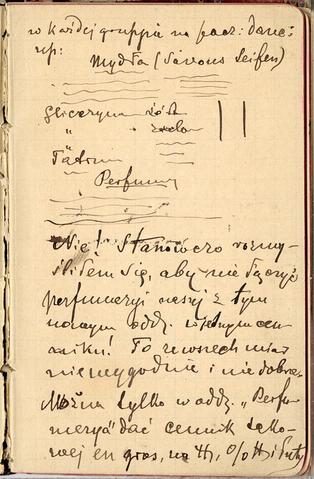 w każdej gruppie na pocz: dane:
np:
Mydła (Savons Seifen)
Gliceryna żółt
" zielon
Tatrz
Perfumy
Nie! Stanowczo rozmy-
śliłem się, aby nie łączyć
perfumeryi naszej z tym
nowym oddz. w jednym cen-
niku! To ze wszech miar
niewygodnie i niedobrze
Można tylko w oddz. „Perfu
merya" dać cennik
en gros, na